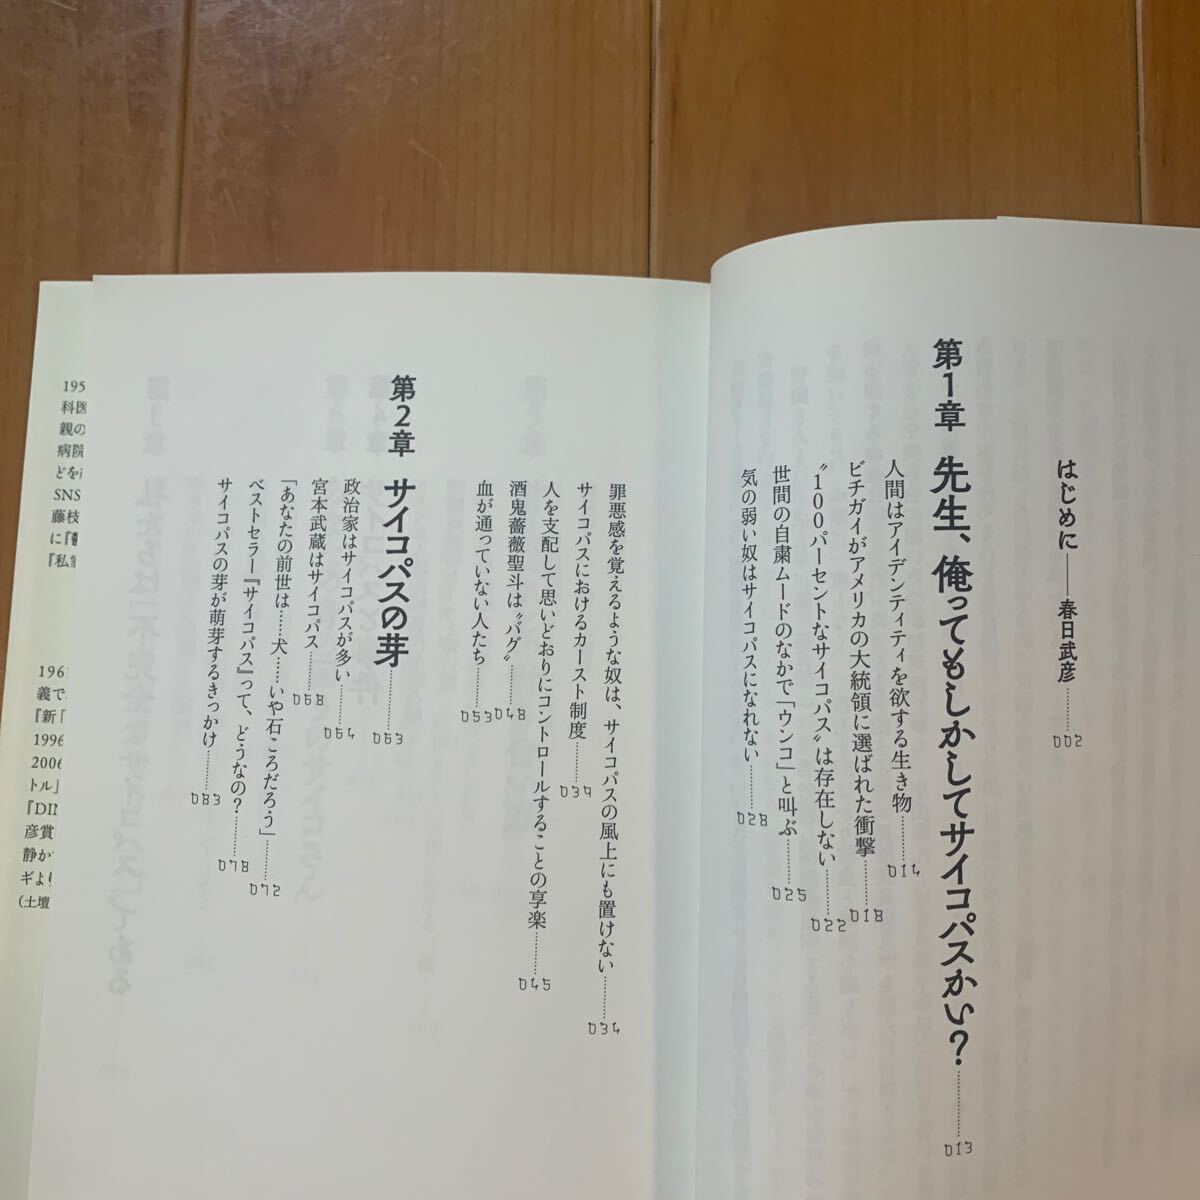 はじめに――春日武彦………002
第1章 先生、俺ってもしかしてサイコパスかい?………013
人間はアイデンティティを欲する生き物………014
ビチガイがアメリカの大統領に選ばれた衝撃………018
〝100パーセントなサイコパス〟は存在しない………022
世間の自粛ムードのなかで「ウンコ」と叫ぶ………025
気の弱い奴はサイコパスになれない………028
罪悪感を覚えるような奴は、サイコパスの風上にも置けない………034
サイコパスにおけるカースト制度………039
人を支配して思いどおりにコントロールすることの享楽………045
酒鬼薔薇聖斗は〝バグ〟………048
血が通っていない人たち………053
第2章 サイコパスの芽………063
政治家はサイコパスが多い………064
宮本武蔵はサイコパス………068
「あなたの前世は……犬……いや石ころだろう」………072
ベストセラー『サイコパス』って、どうなの?………078
サイコパスの芽が萌芽するきっかけ………083
195
科医
親の
病院
どを
SNS
藤枝
に『
『私
196
義で
『新
1996
2006
トル」
『DIN
彦賞
静か
ギより
(土壇